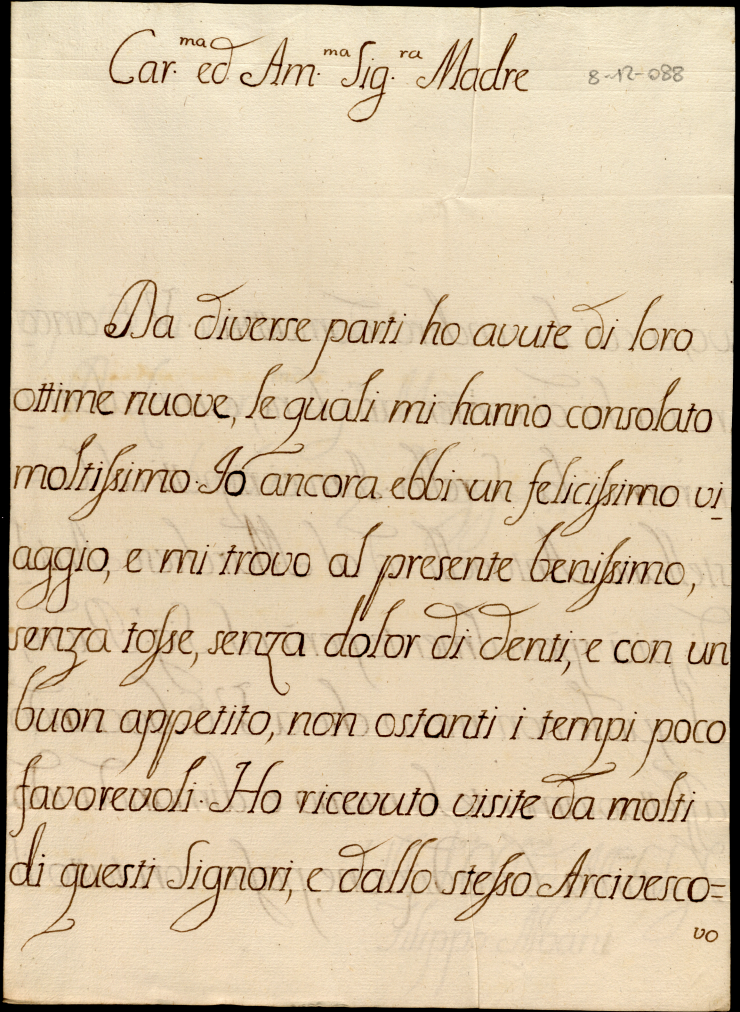 Car.ma ed Am.ma Sig.ra Madre
8-12-088
Da diverse parti ho avute di loro
ottime nuove, le quali mi hanno consolato
moltissimo. Io ancora ebbi un felicissimo vi
aggio, e mi trovo al presente benissimo,
senza tosse, senza dolor di denti, e con un
buon appetito, non ostanti i tempi poco
favorevoli. Ho ricevuto visite da molti
di questi Signori, e dallo stesso Arcivesco=
vo